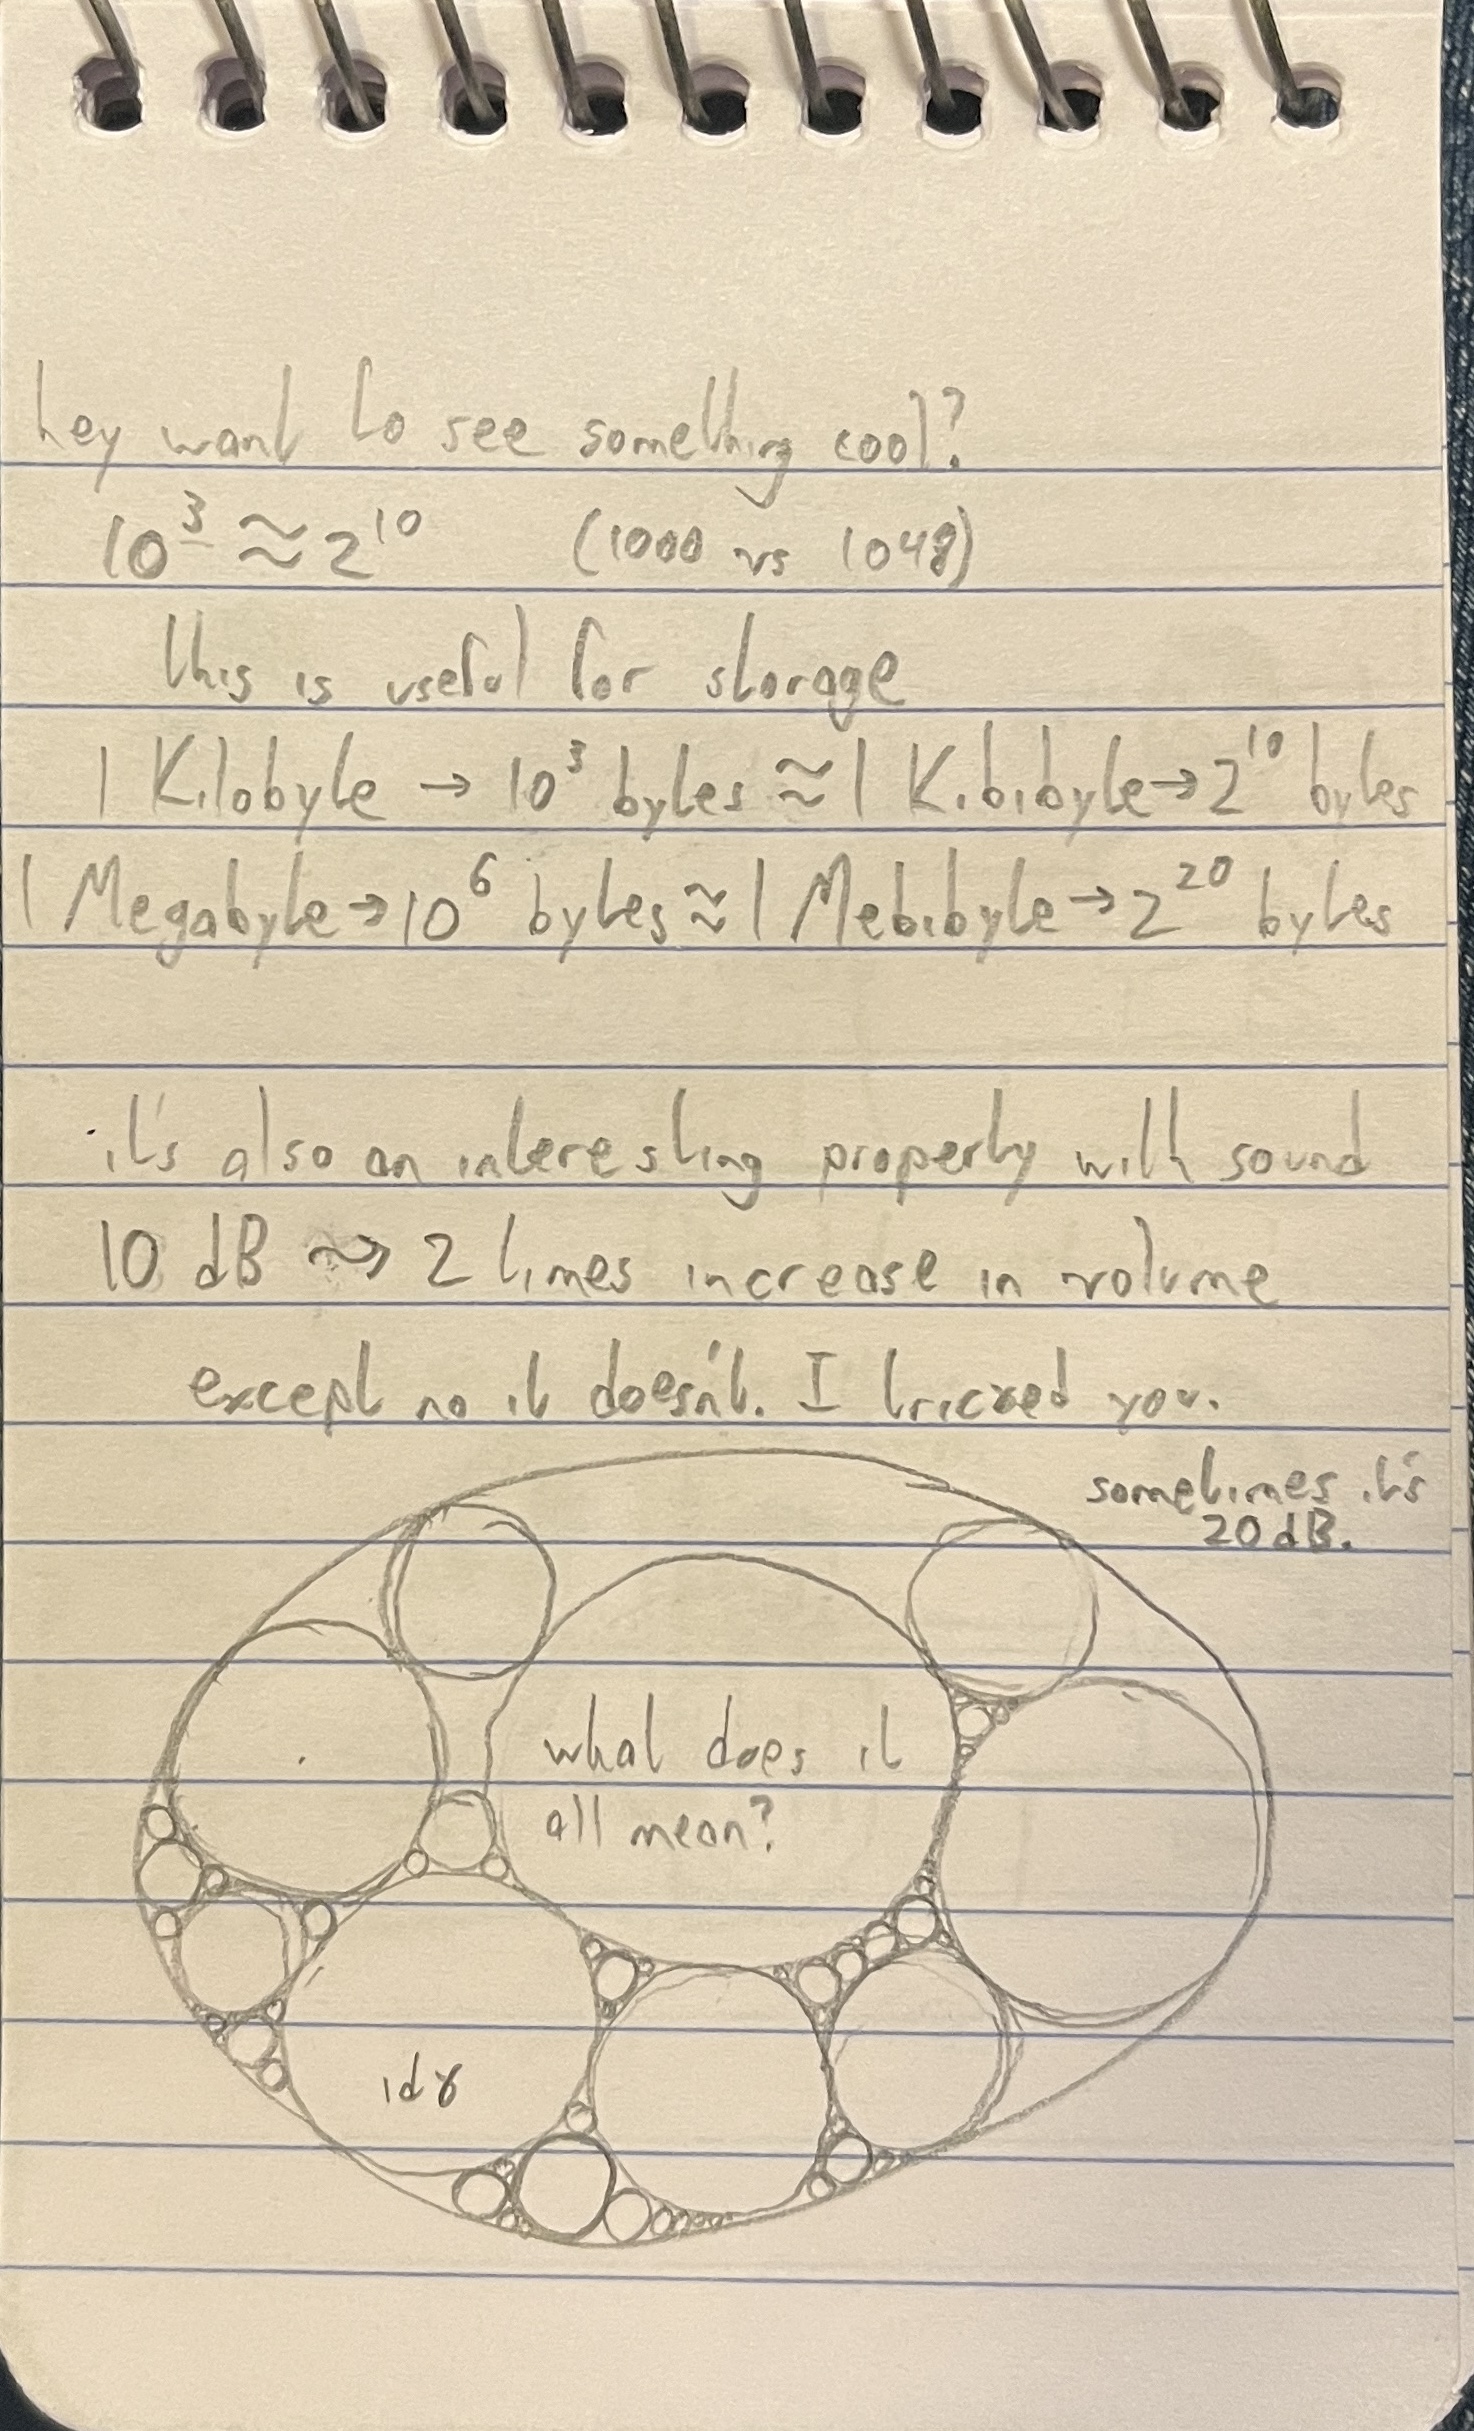 hey want to see something cool?
10³ ≈ 2¹⁰ (1000 vs 1048)
this is useful for storage
1 Kilobyte → 10³ bytes ≈ 1 Kibibyte → 2¹⁰ bytes
1 Megabyte → 10⁶ bytes ≈ 1 Mebibyte → 2²⁰ bytes
it's also an interesting property with sound
10 dB ~> 2 times increase in volume
except no it doesn't. I tricked you.
sometimes it's
20 dB.
what does it
all mean?
idk